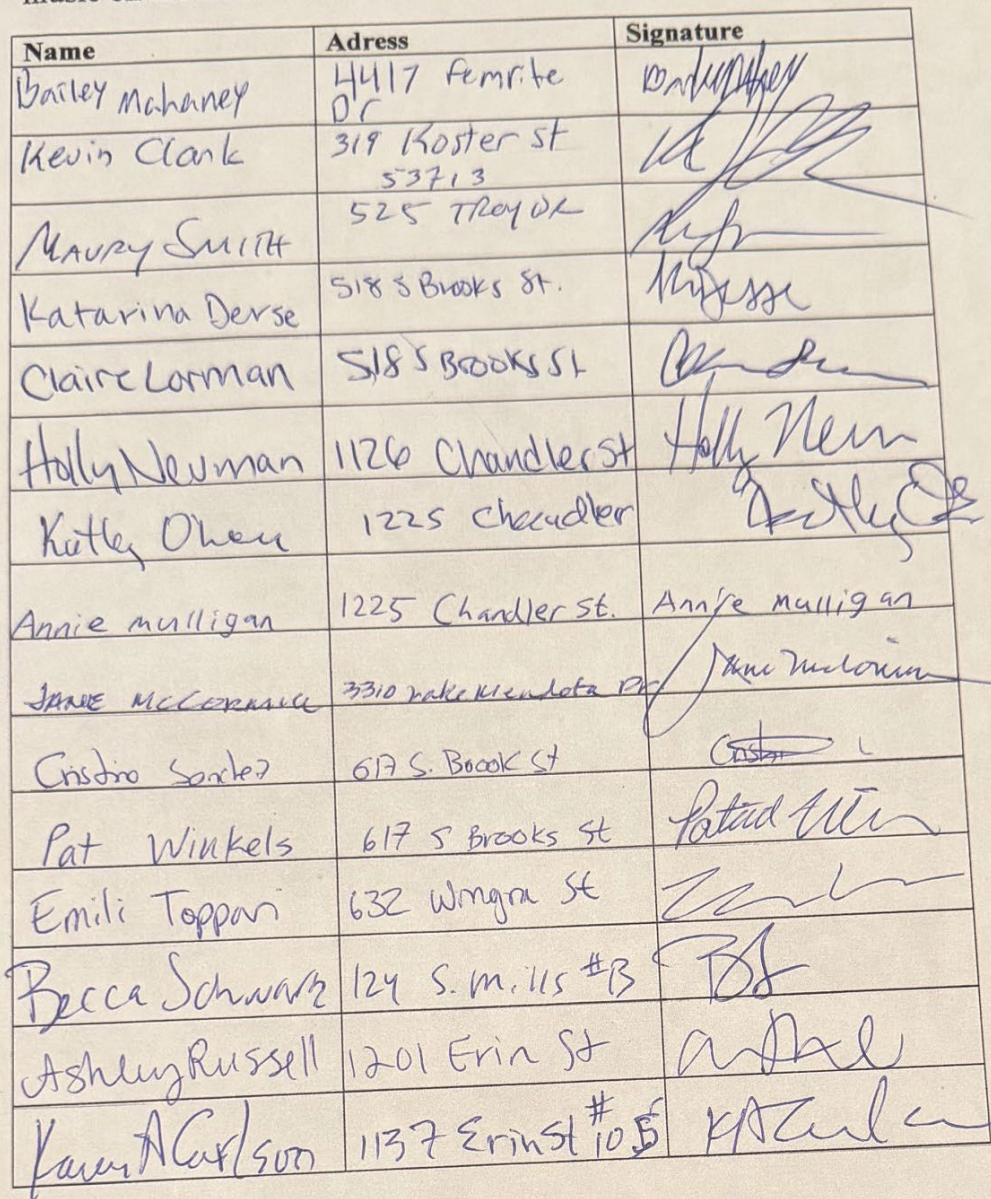 Name Adress Signature
Bailey Mahaney 4417 Femrite
Dr
Kevin Clark 319 Koster St
53713
MAURY SMITH 525 TROY DR
Katarina Derse 518 S Brooks St.
Claire Lorman 518 S Brooks St
Holly Neuman 1126 Chandler St Holly Neum
1225 Chandler
Annie mulligan 1225 Chandler St. Annie mulligan
JANE McCORMICK 3310 Lake Mendota Dr
617 S. Broook St
Pat Winkels 617 S Brooks St
Emili Toppari 632 Wingra St
Becca Schwarz 124 S. Mills #B
Ashley Russell 1201 Erin St
Karen A Carlson 1137 Erin St #105